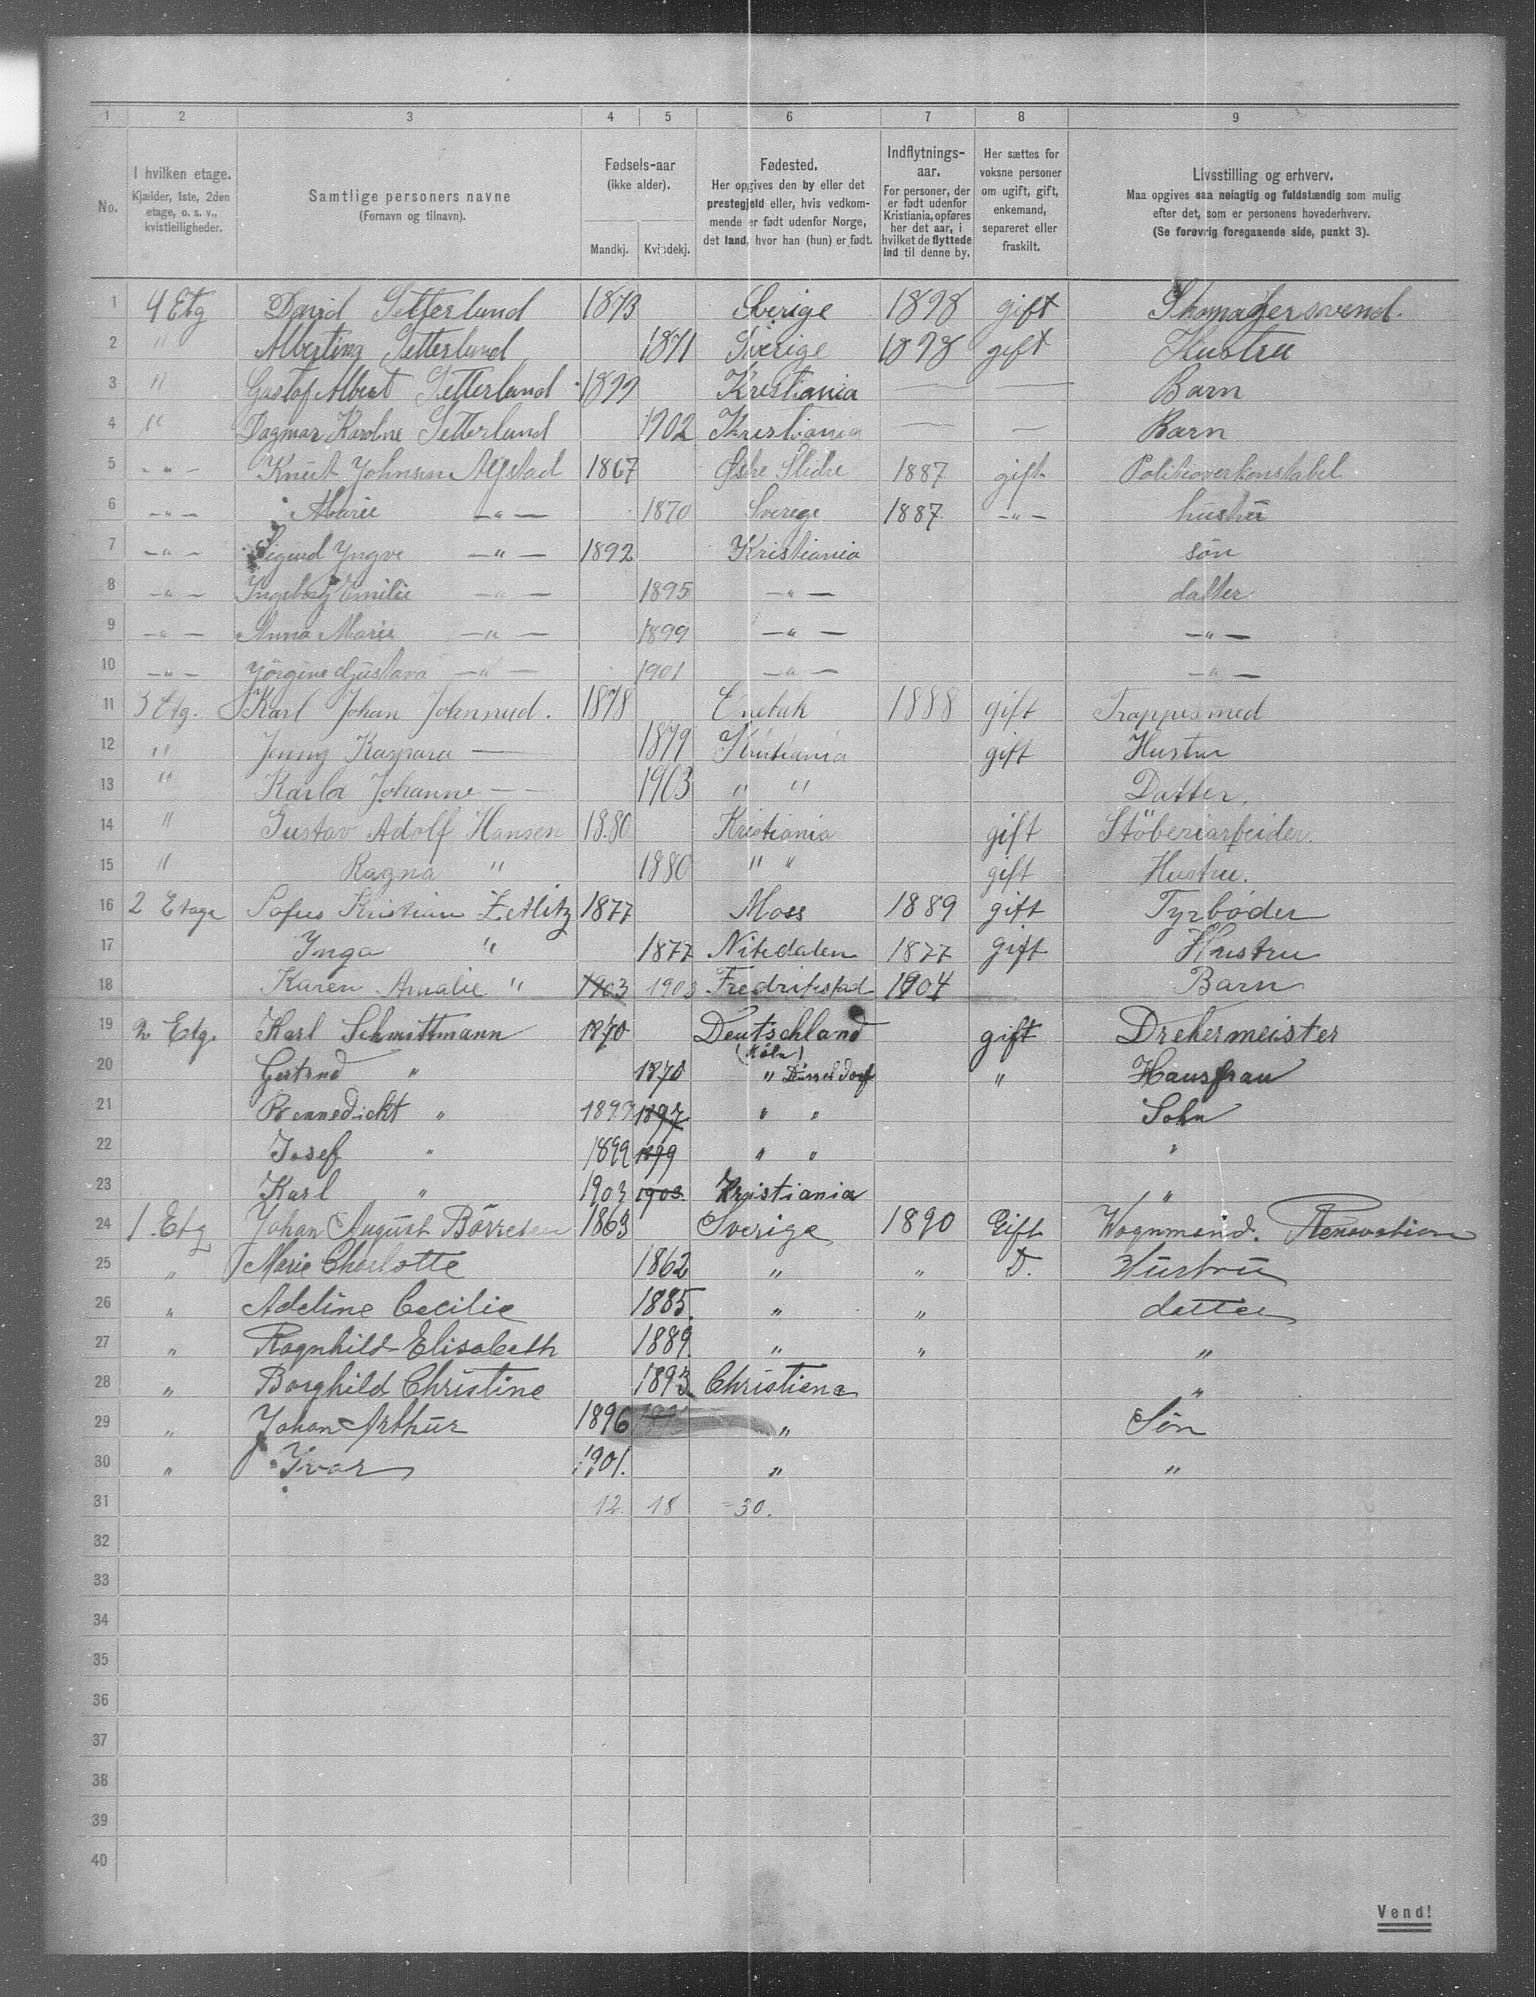 1 2 3 4 5 6 7 8 9
No.
I hvilken etage.
Kjælder, 1ste, 2den
etage, o. s. v.,
kvistleiligheder.
Samtlige personers navne
(Fornavn og tilnavn).
Fødsels-aar
(ikke alder).
Mandkj. Kvindekj.
Fødested.
Her opgives den by eller det
prestegjeld eller, hvis vedkom-
mende er født udenfor Norge,
det land, hvor han (hun) er født.
Indflytnings-
aar.
For personer, der
er født udenfor
Kristiania, opføres
her det aar, i
hvilket de flyttede
ind til denne by.
Her sættes for
voksne personer
om ugift, gift,
enkemand,
separeret eller
fraskilt.
Livsstilling og erhverv.
Maa opgives saa nøiagtig og fuldstændig som mulig
efter det, som er personens hovederhverv.
(Se forøvrig foregaaende side, punkt 3).
1 4 Etg David Setterlund 1873 Sverige 1898 gift Skomagersvend.
2 " Albertina Setterlund 1871 Sverige 1898 gift Hustru
3 " Gustof Albert Setterlund 1899 Kristiania — — Barn
4 " Dagmar Karoline Setterlund 1902 Kristiania — — Barn
5 — " — Knut Johnsen Alfstad 1867 Østre Slidre 1887 gift Politioverkonstabel
6 — " — Marie — " — 1870 Sverige 1887 — " — hustru
7 — " — Sigurd Yngve — " — 1892 Kristiania søn
8 — " — Ingeborg Emilie — " — 1895 — " — datter
9 — " — Anna Marie — " — 1899 — " — — " —
10 — " — Jørgine Gustava — " — 1901 — " — — " —
11 3 Etg. Karl Johan Johnsrud. 1878 Enebak 1888 gift Trappesmed
12 " Jenny Kaspara — 1879 Kristiania gift Hustru
13 " Karla Johanne — — 1903 " " Datter.
14 " Gustav Adolf Hansen 1880 Kristiania gift Stöberiarbeider.
15 " Ragna " 1880 " " gift Hustru.
16 2 Etage Sofus Kristian Zetlitz 1877 Moss 1889 gift Fyrbøder
17 Inga " 1877 Nitedalen 1877 gift Hustru
18 Karen Amalie " 1903 1903 Fredrikstad 1904 Barn
19 2 Etg. Karl Schmittmann 1870 Deutschland gift Drehermeister
(Köln)
20 Gertrud " 1870 " Düsseldorf " Hausfrau
21 Bennedickt " 1897 1897 " " Sohn
22 Josef " 1899 1899 " " "
23 Karl " 1903 1903. Kristiania "
24 1. Etg Johan August Börresen 1863 Sverige 1890 Gift Wognmand. Renovation
25 " Marie Charlotte 1862 " " D. Hustru
26 " Adeline Cecilie 1885. " " datter
27 " Ragnhild Elisabeth 1889. " " "
28 " Borghild Christine 1893 Christiana "
29 " Johan Arthur 1896 " Sön
30 " Yvar 1901. " "
31 12. 18 = 30.
32
33
34
35
36
37
38
39
40
Vend!